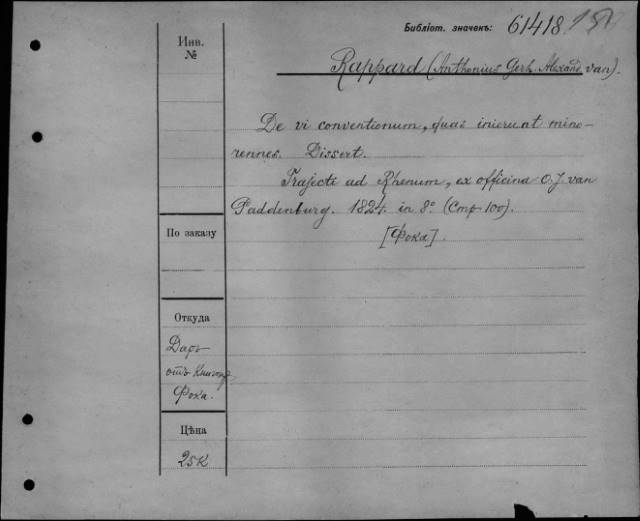 Библіот. значекъ: 61418
Инв.
№
Rappard (Anthonius Gerh. Alexand. van).
De vi conventionum, quas inierunt mino-
rennes. Dissert.
Trajecti ad Rhenum, ex officina O. J. van
Paddenburg. 1824. in 8° (Стр 100).
[Фока].
По заказу
Откуда
Даръ
отъ
Фока.
Цѣна
25к